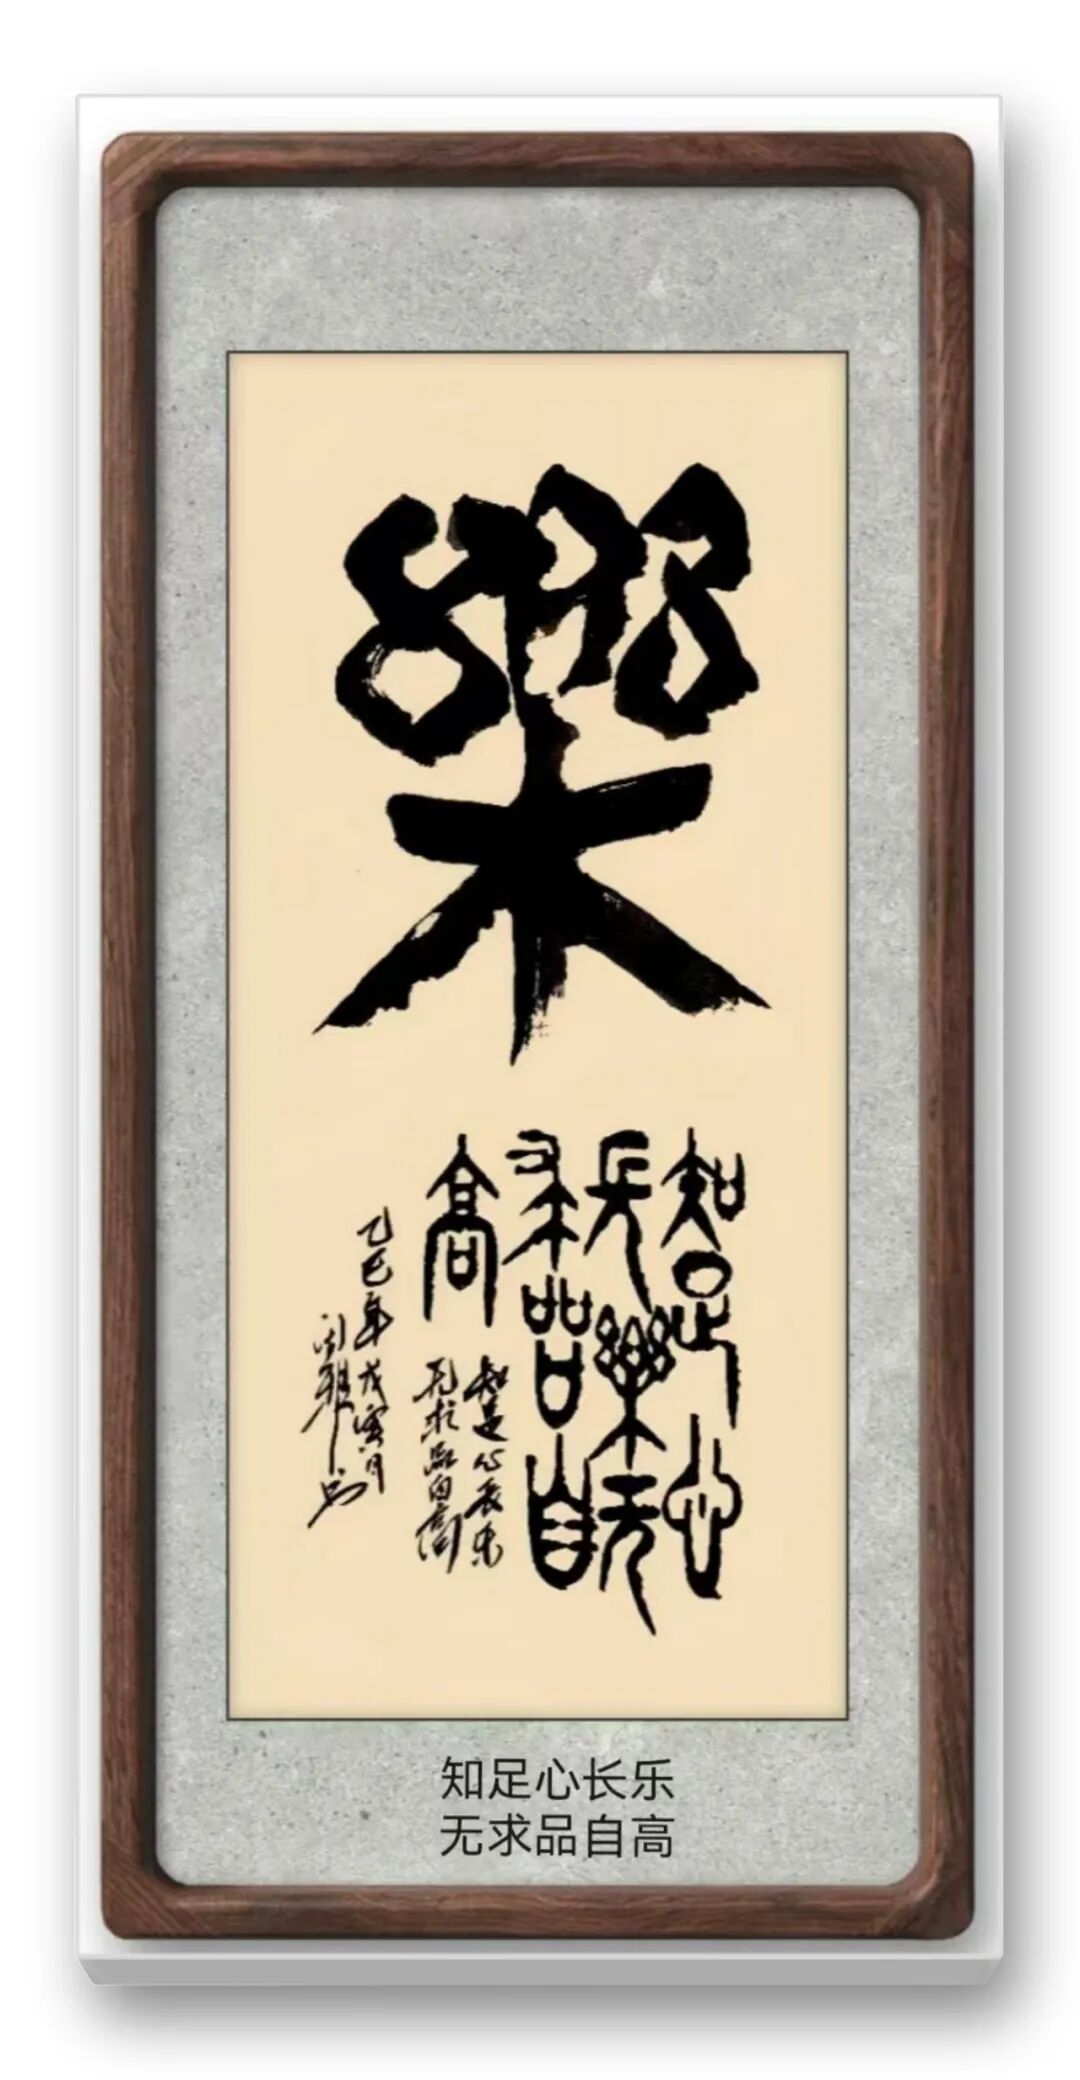 樂
知足心
長樂无
求品自
高
知足心長乐
无求品自高
乙巳年戊寅月
知足心长乐
无求品自高